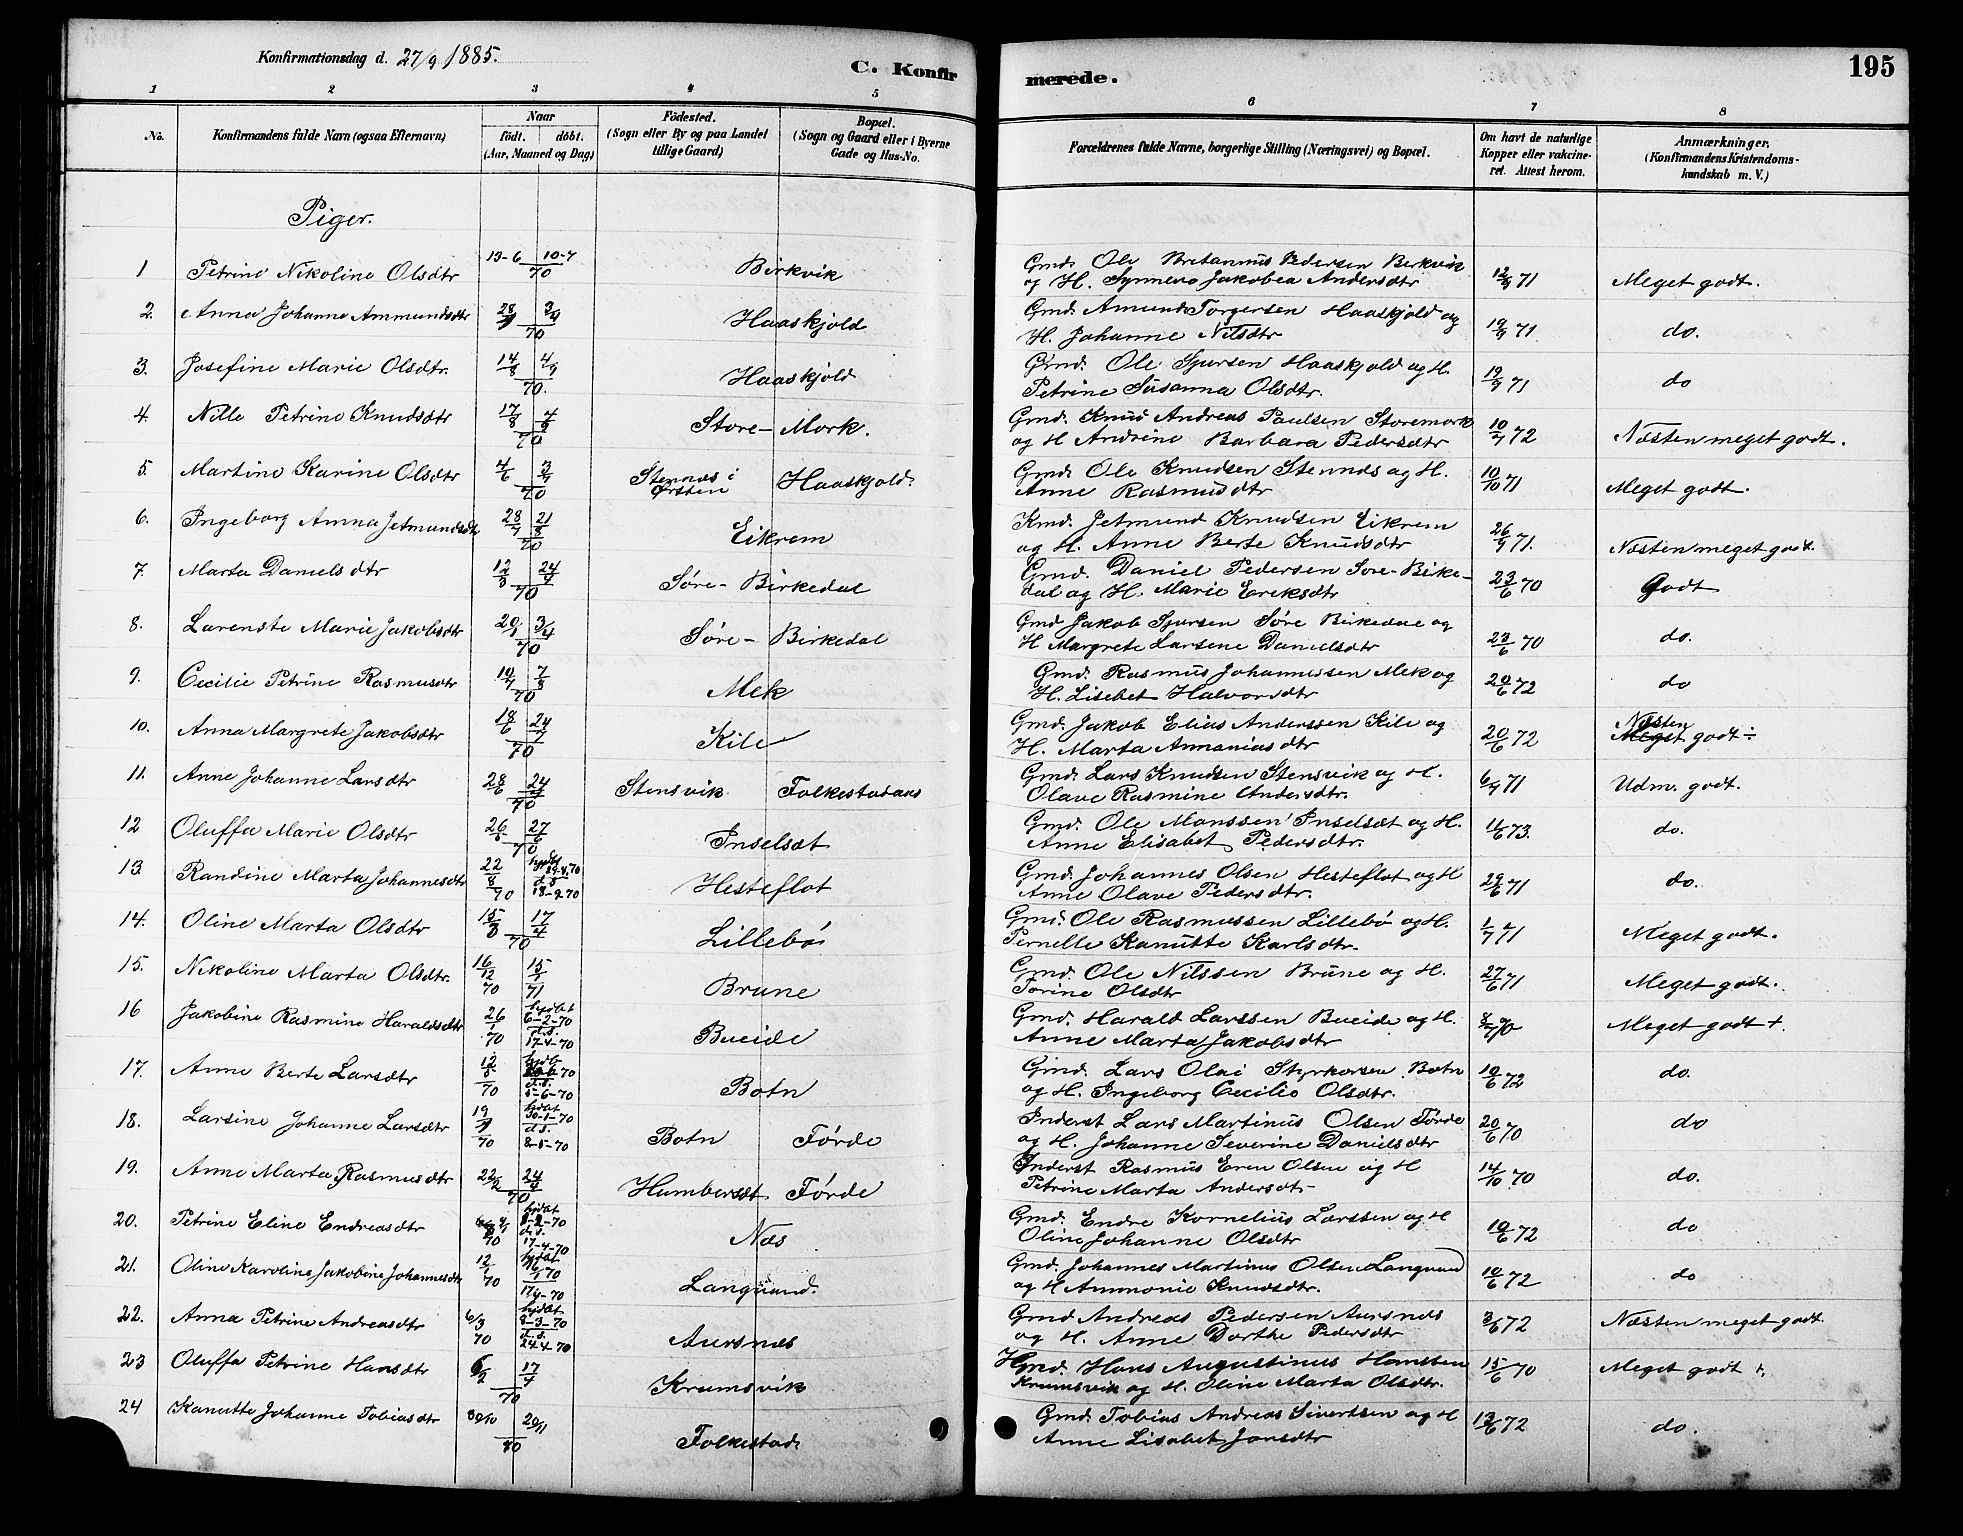 Konfirmationsdag d. 27/9 1885.
C. Konfirmerede.
195
1 2 3 4 5 6 7 8
No. Konfirmandens fulde Navn (ogsaa Efternavn) Naar født. døbt. (Aar, Maaned og Dag) Födested. (Sogn eller By og paa Landet tillige Gaard) Bopæl. (Sogn og Gaard eller i Byerne Gade og Hus-No. Forældrenes fulde Navne, borgerlige Stilling (Næringsvei) og Bopæl. Om havt de naturlige Kopper eller vakcineret. Attest herom. Anmærkninger. (Konfirmandens Kristendomskundskab m. V.)
Piger.
1 Petrine Nikoline Olsdtr 13-6 10-7 70 Birkvik Gmd. Ole Bretannus Pedersen Birkvik og H. Synneva Jakobea Andersdtr 12/9 71 Meget godt.
2. Anna Johanne Ammundsdtr 70 Haaskjold Gmd. Amund Torgersen Haaskjold og H. Johanne Nilsdtr 19/9 71 do.
3. Josefine Marie Olsdtr. 14/8 4/9 70. Haaskjold Gmd. Ole Sjursen Haaskjold og H. Petrine Susanna Olsdtr. 19/9 71 do
4. Nille Petrine Knudsdtr 17/8 70 Store-Mork. Gmd. Knud Andreas Paulsen Storemork og H Andrine Barbara Pedersdtr 10/7 72 Næsten meget godt.
5. Martine Karine Olsdtr 4/6 3/7 70 Stennæs i Ørsten Haaskjold. Gmd. Ole Knudsen Stennæs og H. Anne Rasmusdtr 10/10 71 Meget godt.
6. Ingeborg Anna Jetmundsdtr 28/7 21/8 70 Eikrem Kmd. Jetmund Knudsen Eikrem og H. Anne Berte Knudsdtr 26/9 71. Næsten meget godt.
7. Marta Danielsdtr 12/3 24/4 70 Søre-Birkedal Gmd. Daniel Pedersen Søre-Birkedal og H. Marie Eriksdtr 23/6 70 Godt
8. Larenste Marie Jakobsdtr 20/1 3/4 70 Søre-Birkedal Gmd Jakob Sjursen Søre Birkedal og H Margrete Larsene Danielsdtr 23/6 70 do.
9. Cecilie Petrine Rasmusdtr 10/7 7/8 70 Mek Gmd. Rasmus Johannessen Mek og H. Lisebet Halvorsdtr 20/6 72 do
10. Anna Margrete Jakobsdtr 18/6 24/7 70 Kile Gmd. Jakob Elias Anderssen Kile og H. Marta Annaniasdtr 20/6 72 Næsten Meget godt ÷
11. Anne Johanne Larsdtr 28/6 24/7 70 Stensvik Folkestadaas Gmd. Lars Knudsen Stensvik og H. Olave Rasmine Andersdtr. 6/7 71 Udm. godt.
12 Oluffa Marie Olsdtr 26/5 27/6 70 Inselsæt Gmd. Ole Monssen Inselsæt og H. Anne Elisabet Pedersdtr. 11/6 73. do.
13. Randine Marta Johannesdtr 22/8 70 hjdøbt 29-8.70 d.s. 18-9-70 Hesteflot Gmd. Johannes Olsen Hesteflot og H Anne Olave Pedersdtr. 29/6 71 do.
14. Oline Marta Olsdtr 15/3 17/4 70 Lillebø Gmd. Ole Rasmussen Lillebø og H. Pernelle Kanutte Karlsdtr. 1/7 71 Meget godt.
15. Nikoline Marta Olsdtr. 16/12 70 15/1 71 Brune Gmd. Ole Nilssen Brune og H. Torine Olsdtr 27/6 71 Meget godt.
16 Jakobine Rasmine Haraldsdtr 26/1 70 hjdøbt 6-2-70 d.s. 17-4-70 Bueide Gmd. Harald Larssen Bueide og H. Anne Marta Jakobsdtr 8/7 70 Meget godt +.
17. Anne Berte Larsdtr 12/5 70 d.s. 5-6-70 Botn Gmd. Lars Olai Styrkorsen Botn og H. Ingeborg Cecilie Olsdtr. 10/6 72 do.
18. Larsine Johanne Larsdtr 70 hjdøbt 30-1-70 d.s. 8-5-70 Botn Førde Inderst Lars Martinus Olsen Førde og H. Johanne Severine Danielsdtr 20/6 70 do
19. Anne Marta Rasmusdtr 22/2 24/4 70 Humbersæt Førde Inderst Rasmus Eren Olsen og H Petrine Marta Andersdtr 14/10 70 do.
20. Petrine Eline Endreasdtr 70 hjdøbt 8-2-70 d.s. 17-4-70 Næs Gmd. Endre Kornelius Larssen og H Oline Johanne Olsdtr 10/6 72 do
21. Oline Karoline Jakobine Johannesdtr 12/1 70 hjdøbt 16/1 70 17/4-70 Langvand. Gmd. Johannes Martinus Olsen Langvand og H Ammonie Knudsdtr. 10/6 72 do
22. Anna Petrine Andreasdtr 6/3 70 hjdøbt 8-3-70 d.s. 24 4 70 Aursnæs Gmd Andreas Pedersen Aursnæs og H. Anne Dorthe Pedersdtr 3/6 72 Næsten meget godt
23 Oluffa Petrine Hansdtr 6/2 17/4 70 Krumsvik Gmd. Hans Augustinus Hanssen Krumsvik og H. Oline Marta Olsdtr. 15/6 70 Meget godt +
24 Kanutte Johanne Tobiasdtr 30/10 20/11 70 Folkestad. Gmd. Tobias Andreas Sivertsen og H Anne Lisabet Jonsdtr 13/6 72 do.